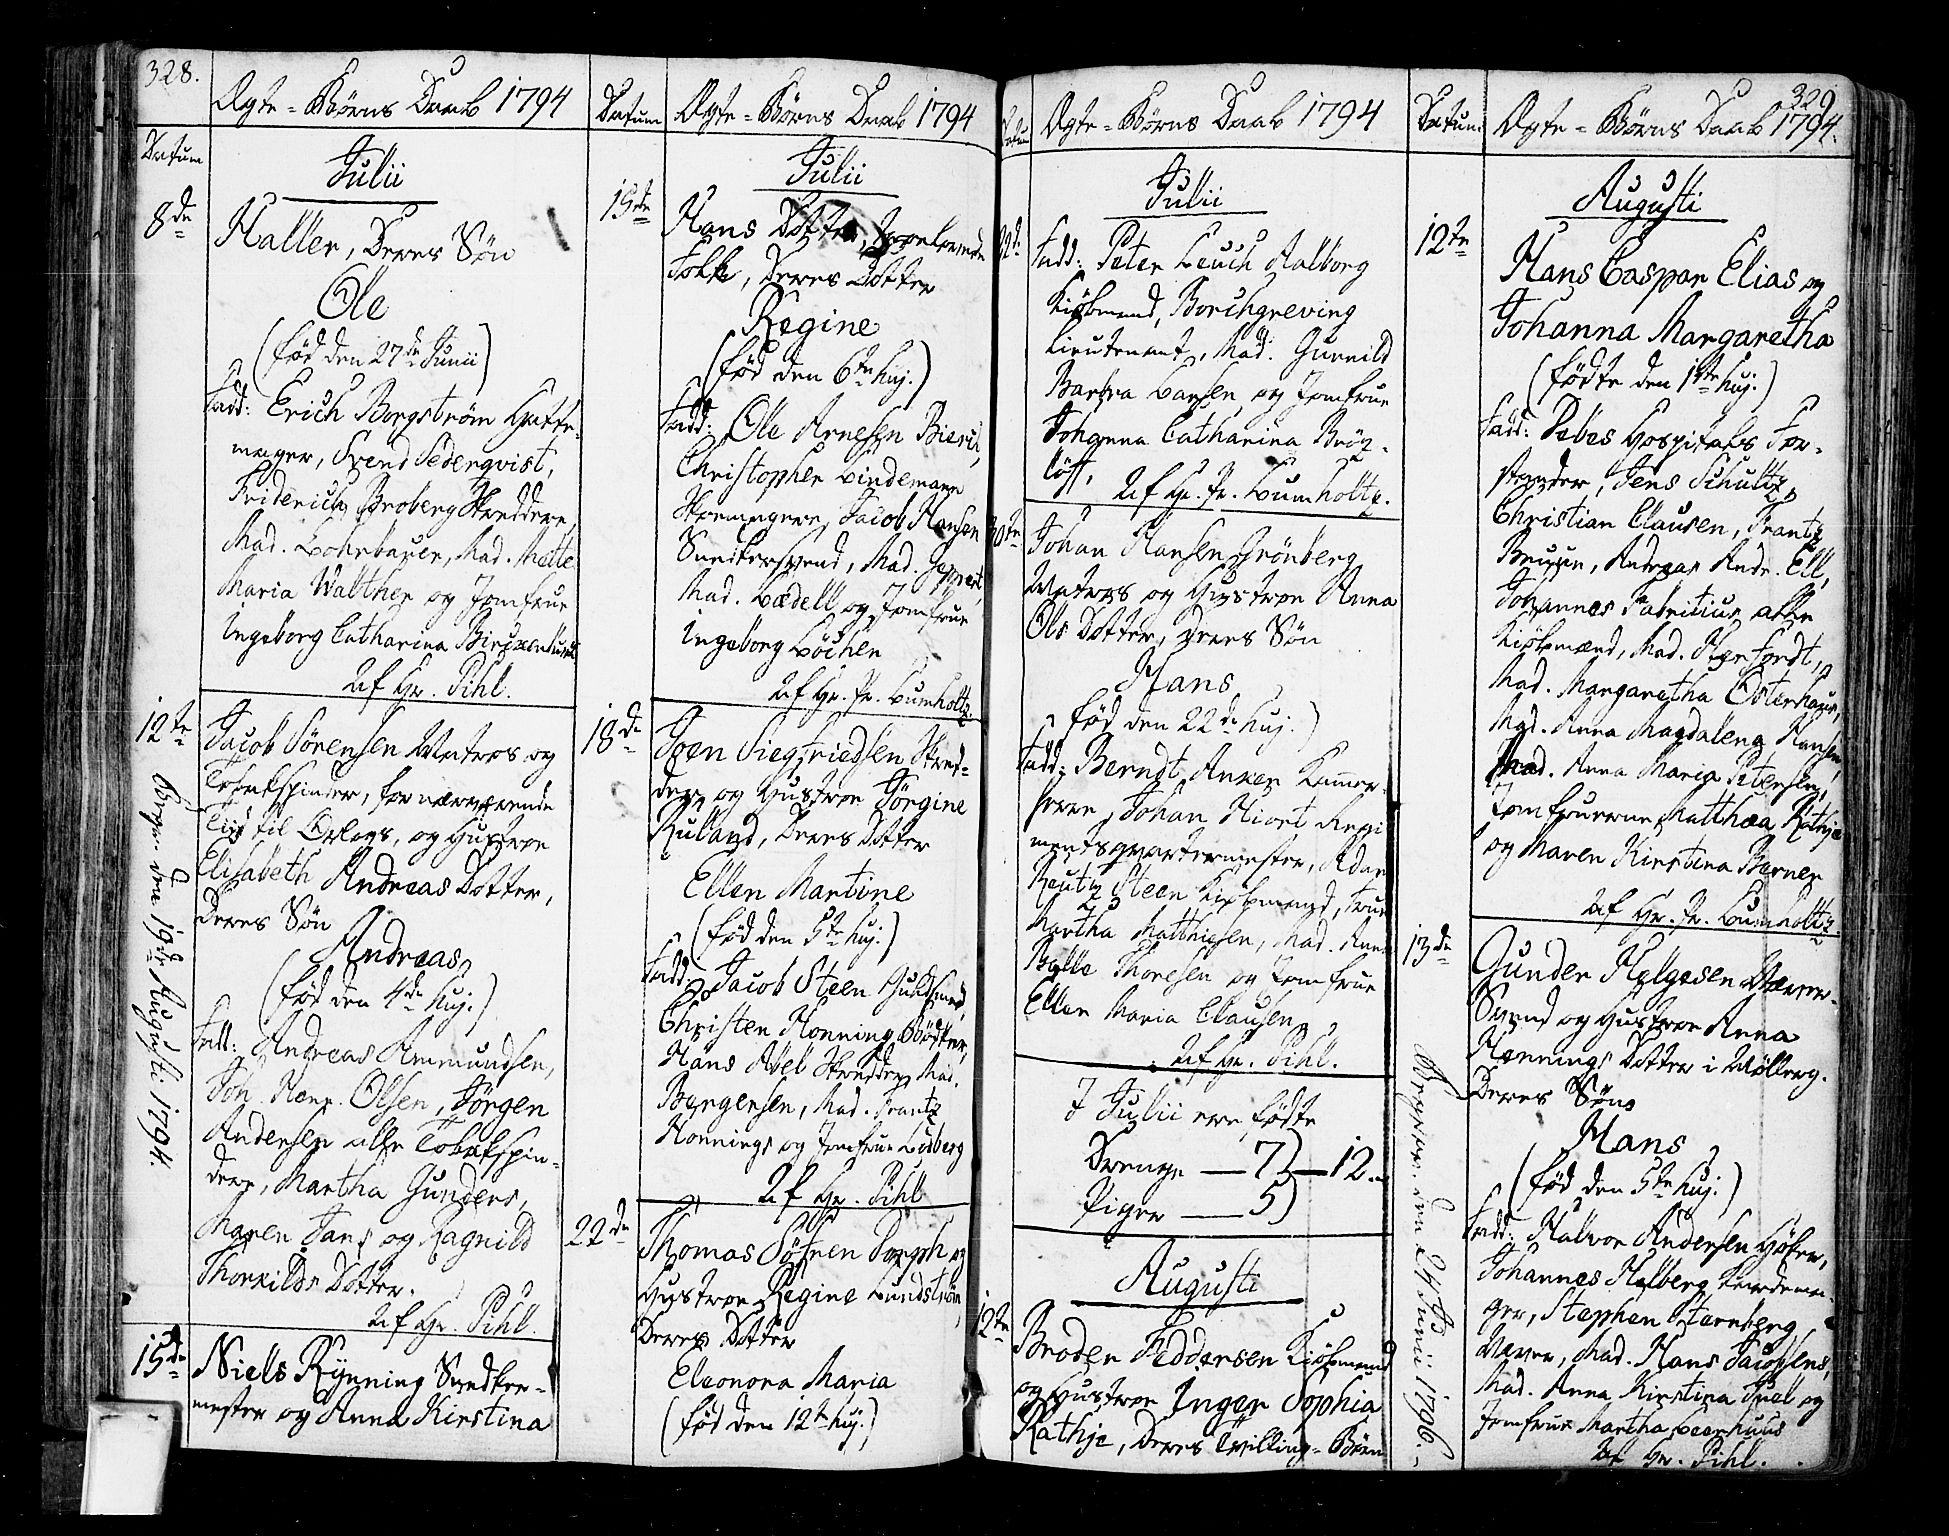 328.
Ægte-Børns Daab 1794
Datum
Julii
8de
Haller, Deres Søn
Ole
(fød den 27de Junii)
Fadd: Erich Borgstrøm Hatte-
mager, Svend Sederqvist,
Friderich Broberg Skreddere,
Mad. Lohrbauer, Mad. Mette
Maria Walther og Jomfrue
Ingeborg Catharina
Af Hr. Pihl.
12te
Jacob Sørensen Matros og
Tobakspinder, for nærværende
Tiid til Orlogs, og Hustroe
Elisabeth Andreas Dotter,
Deres Søn
Andreas
(fød den 4de huj.)
Fadd: Andreas Ammundsen,
Joh. Henr. Olsen, Jørgen
Andersen alle Tobakspin-
dere, Martha Gunders,
Maren Jans og Ragnild
Thorkilds Dotter.
Af Hr. Pihl.
den 19de Augusti 1794.
15de
Niels Rynning Snedker-
mester og Anna Kirstina
Datum
Ægte-Børns Daab 1794
Julii
15de
Hans Dotter,
Fokk, Deres Dotter
Regine
(fød den 6te huj.)
Fadd: Ole Arnesen
Christopher Lindemann
Skomagere, Jacob Hansen
Snedkersvend, Mad.
Mad. Lædell og Jomfrue
Ingeborg Løchen
Af Hr. Pr. Lumholtz.
18de
Joen Siegfriedsen Skred-
der og Hustroe Jørgine
Ruland, Deres Dotter
Ellen Martine
(fød den 5te huj.)
Fadd: Jacob Steen Guldsmed,
Christen Honning Bødker,
Hans Abel Skredder, Mad.
Børgersen, Mad. Frantz
Honnings og Jomfrue Lødberg
Af Hr. Pihl
22de
Thomas Søfren og
Hustroe Regine Lundstrøm,
Deres Dotter
Eleonora Maria
(fød den 12te huj.)
Datum
Ægte-Børns Daab 1794
Julii
22de
Fadd: Peter Leuch Aalborg
Kiøbmand, Borchgreving
Lieutenant, Mad. Gunnild
Barbra Larsen og Jomfrue
Johanna Catharina Brøz-
løff.
Af Hr. Pr. Lumholtz.
30te
Johan Hansen Grønberg
Matros og Hustroe Anna
Ols Dotter, Deres Søn
Hans
(fød den 22de huj.)
Fadd: Berndt Anker Kammer-
herre, Johan Hiort Regi
mentsqvartermester, Adam
Reutz Steen Kiøbmand, Frue
Martha Matthiesen, Mad. Anne
Bylle Thoresen og Jomfrue
Ellen Maria Clausen
Af Hr. Pihl.
I Julii ere fødte
Drenge — 7) — 12.
Piger — 5)
Augusti
12te
Broder Feddersen Kiøbmand
og Hustroe Inger Sophia
Kathje, Deres Tvilling-Børn
Datum
329
Ægte-Børns Daab 1794.
Augusti
12te
Hans Caspar Elias og
Johanna Margaretha
(fødte den 1ste huj.)
Fadd: Debes Hospitals For-
stander, Jens Schultz,
Christian Clausen, Frantz
Bruun, Andreas Andr. Ell,
Johannes Fabritius alle
Kiøbmænd, Mad. Herfordt,
Mad. Margaretha Osterhaus,
Mad. Anna Magdalena Hansen,
Mad. Anna Maria Petersen,
Jomfruerne Matthæa Kathje
og Maren Kirstina Berner
Af Hr. Pr. Lumholtz.
13de
Gunder Helgesen Væver-
Svend og Hustroe Anna
Hennings Dotter i Møllerg.
Deres Søn
Hans
(fød den 5te huj.)
Fadd: Halvor Andersen Høker,
Johannes Holberg
ger, Stephen Sternberg
Væver, Mad. Hans Jacobsens,
Mad. Anna Kirstina Juel og
Jomfrue Martha Leerhuus
Af Hr. Pihl.
den 24de Junii 1796.